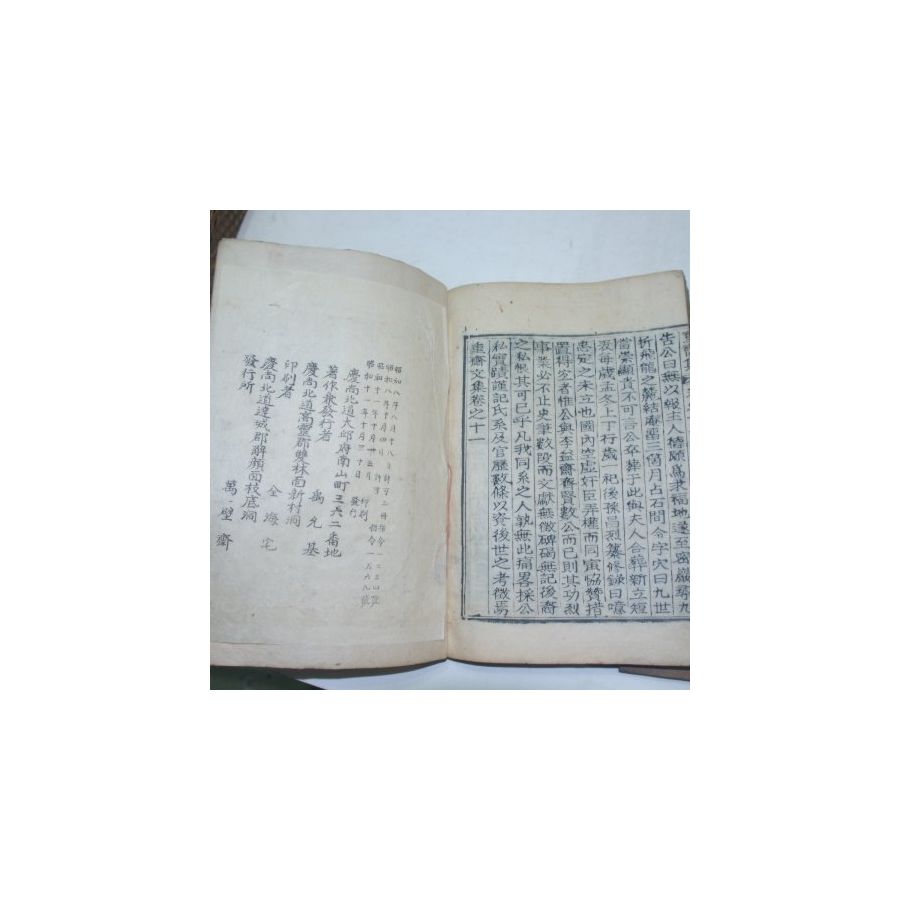 告公曰無以報主人惟願爲求福地遂至密嚴
折飛龍之麓結廬留三箇月占石問令字穴曰九世
當崇顯貴不可言公卒葬于此與夫人合葬新立短
表每歲孟冬上丁行歲一祀後孫昌烈纂修錄曰噫
忠定之未立也國內空虛奸臣弄權而同寅協贊措
置得宜者惟公與李益齋齊賢數公而已則其功烈
事業必不止史筆數段而文獻無徵碑碣無記後裔
之私恨其可已乎凡我同系之人孰無此痛畧採公
私實蹟謹記氏系及官歷數條以資後世之考徵焉
齋文集卷之十一
昭和八年八月十八日許可二冊指令一二三四號
昭和八年十月四日許可 指令一五六九號
昭和十一年十月廿五日 印刷
昭和十一年十月三十日 發行
慶尚北道大邱府南山町三五二番地
著作兼發行者 禹允基
慶尚北道高靈郡雙林面新村洞
印刷者 全海宅
慶尚北道達城郡解顏面枝底洞
發行所 萬一壁齋